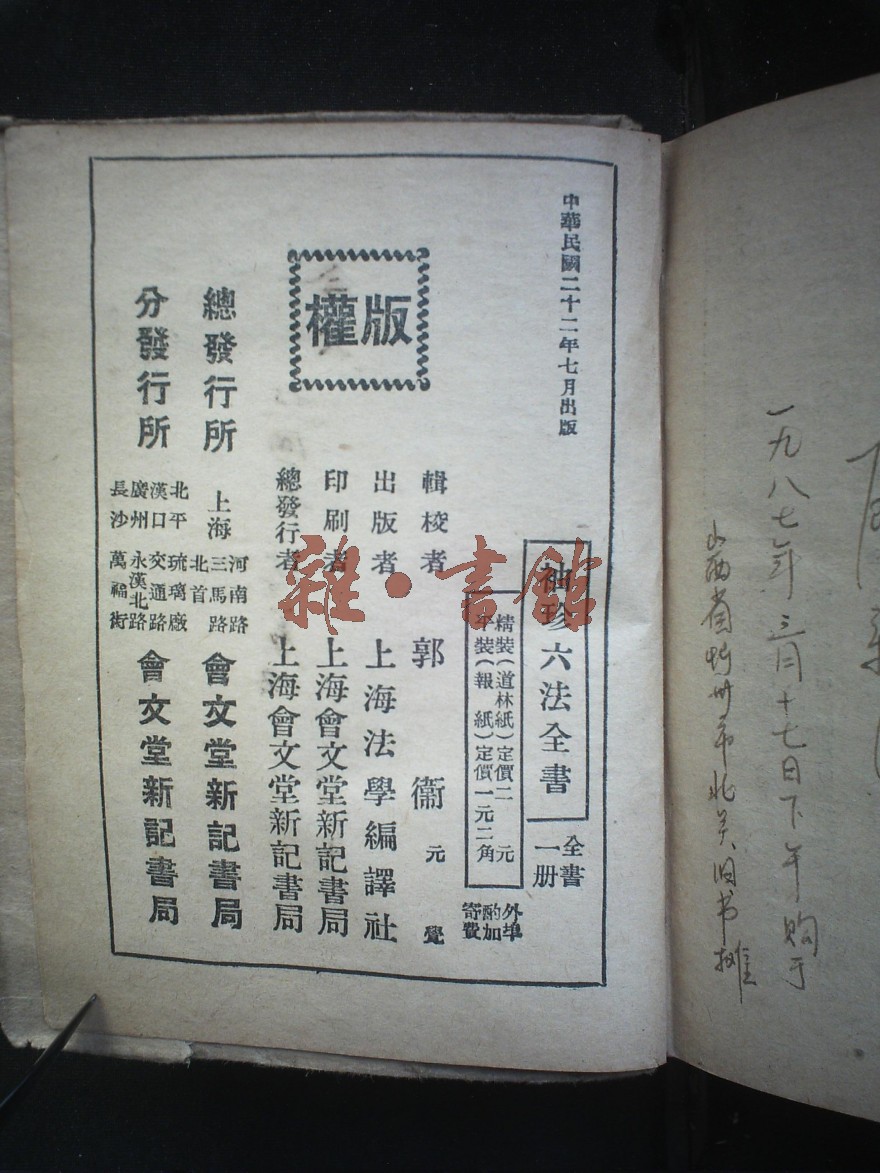 中華民國二十二年七月出版
袖珍六法全書
全書一册
精裝(道林紙)定價二元
平裝(報紙)定價一元二角
外埠酌加寄費
版權
輯校者 郭衞元覺
出版者 上海法學編譯社
印刷者 上海會文堂新記書局
總發行者 上海會文堂新記書局
總發行所 上海 河南路三馬路北首 會文堂新記書局
分發行所 北平琉璃廠 漢口交通路 廣州永漢北路 長沙萬福街 會文堂新記書局
一九八七年三月十七日下午购于
山西省忻州市北关旧书摊
雜·書館